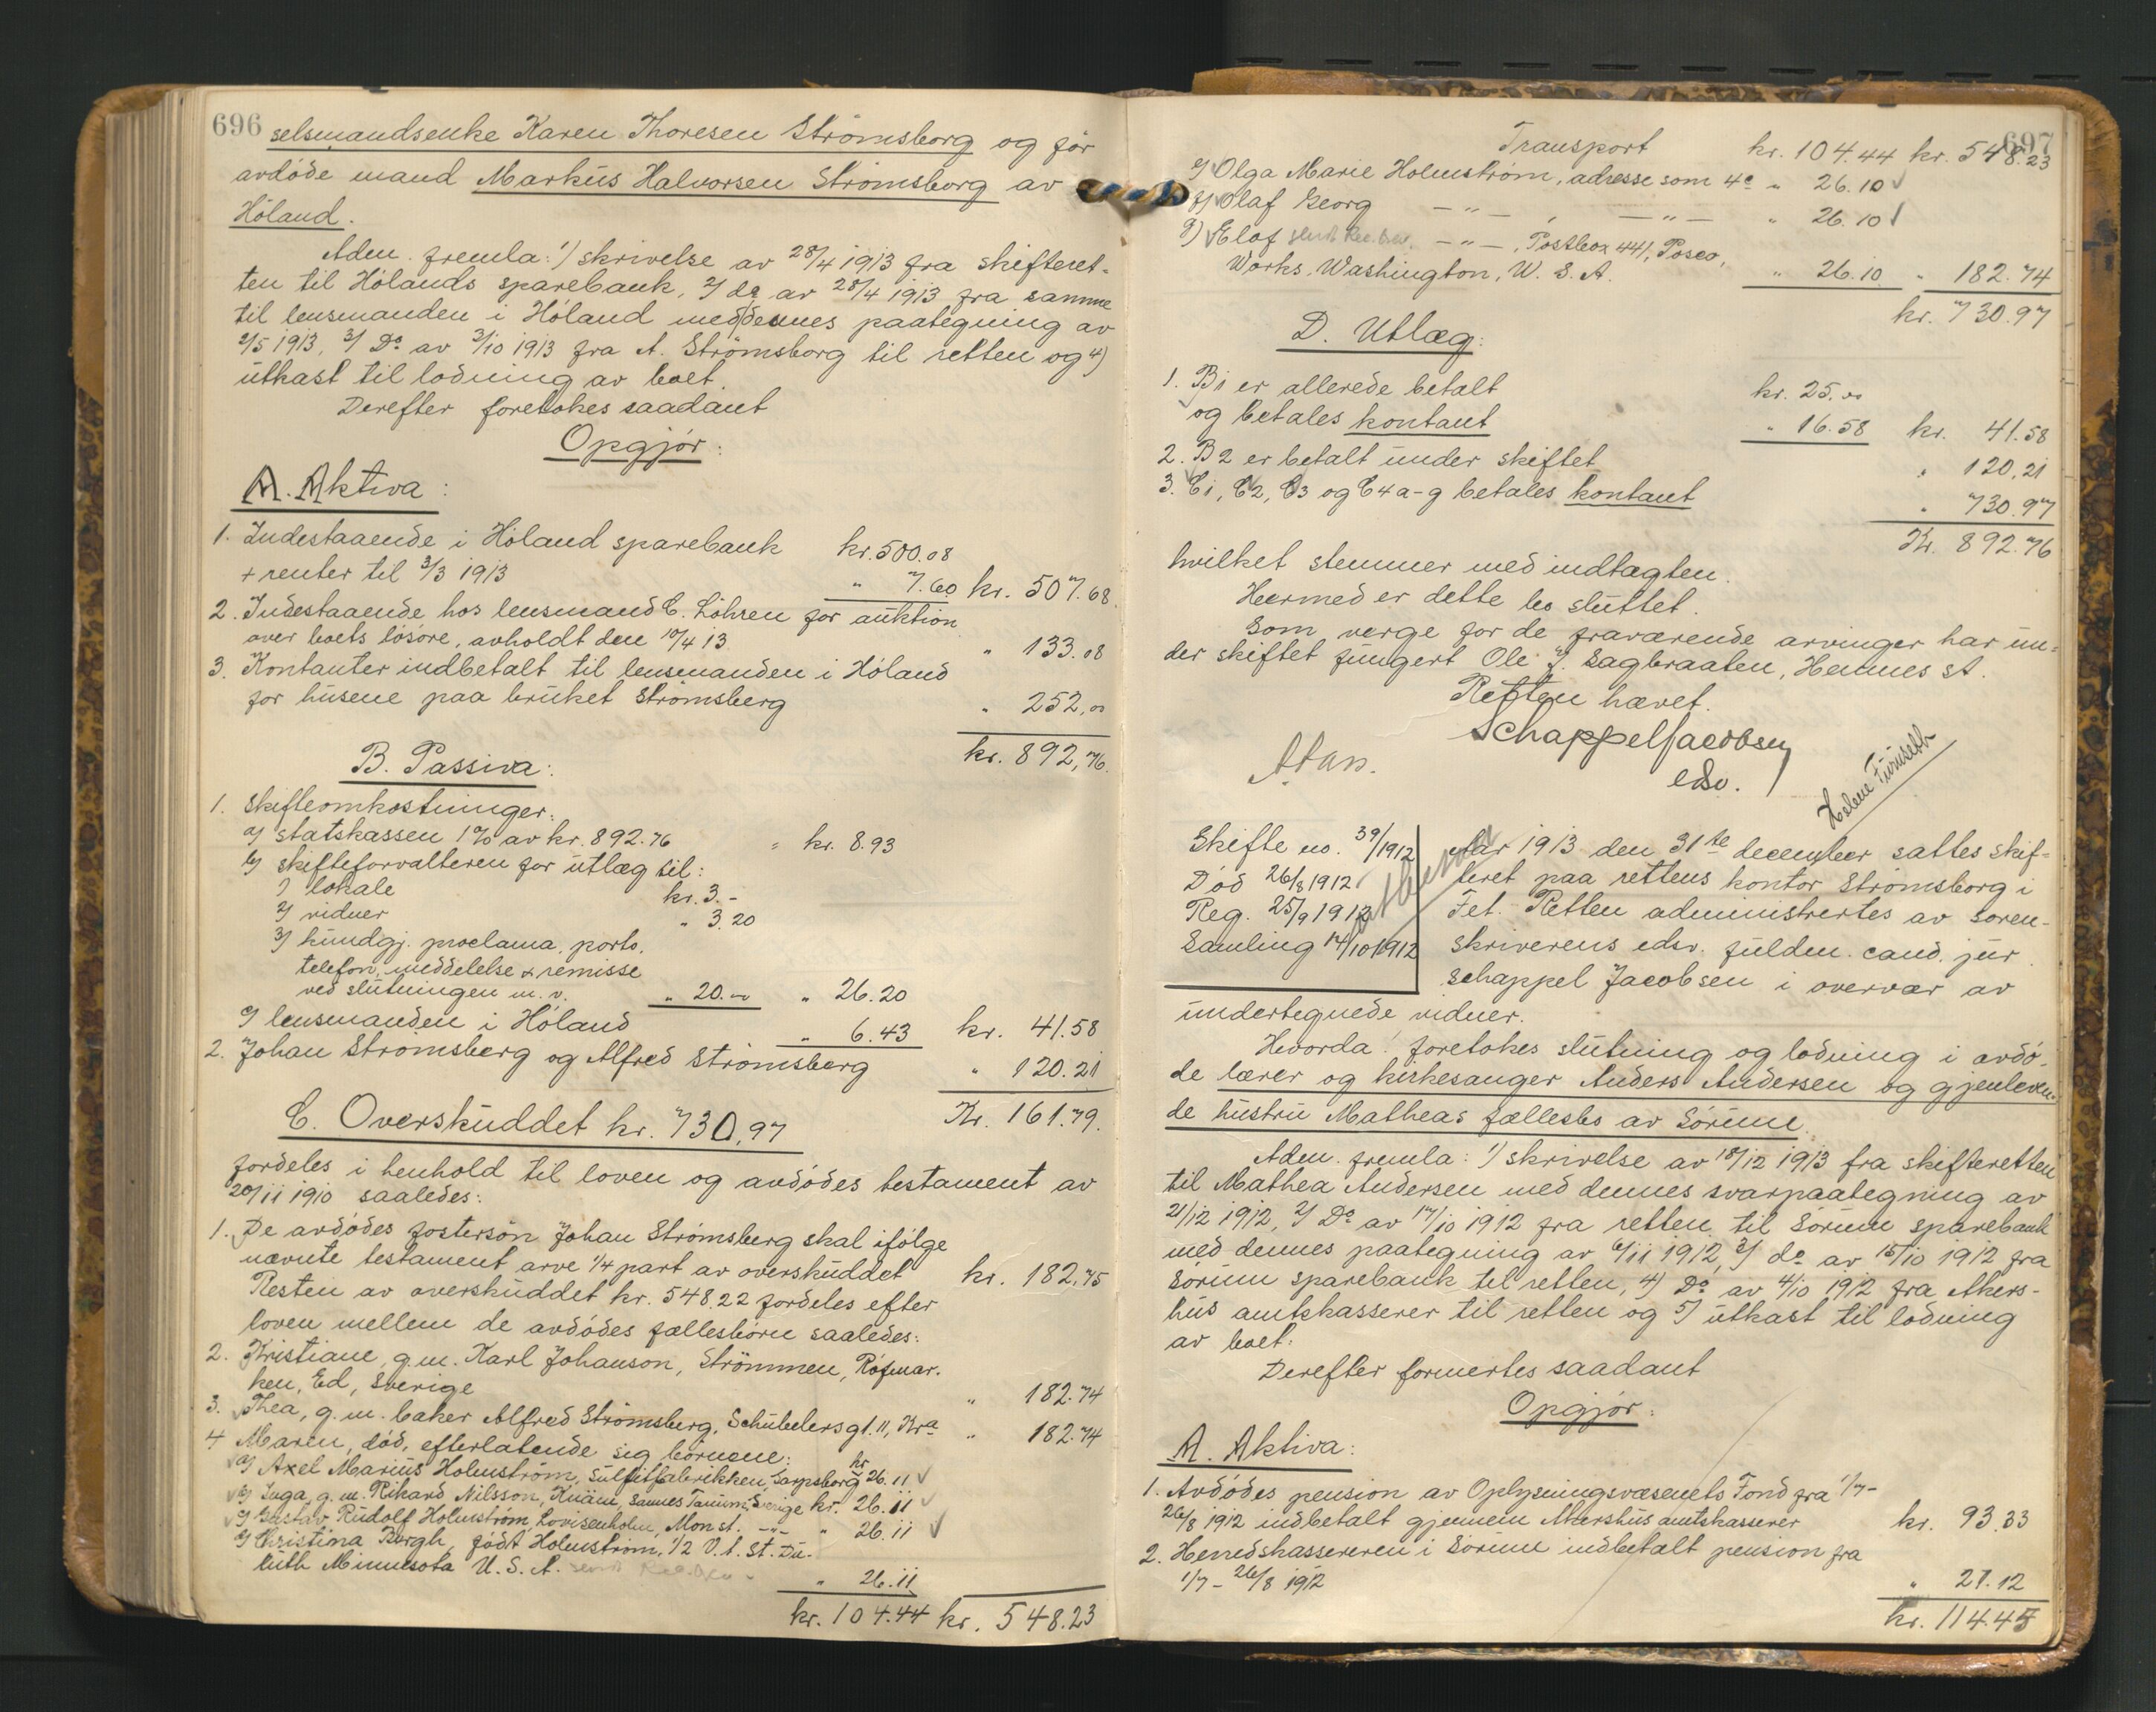 696
selsmandsenke Karen Thoresen Strømsborg og før
avdøde mand Markus Halvorsen Strømsborg av
Høland.
Aden. fremla: 1) skrivelse av 28/4 1913 fra skifteret-
ten til Hølands sparebank, 2) do av 28/4 1913 fra samme
til lensmanden i Høland med dennes paategning av
2/5 1913, 3) Do av 3/10 1913 fra A. Strømsborg til retten og 4)
utkast til lodning av boet.
Derefter foretokes saadant
Opgjør:
A. Aktiva:
1. Indestaaende i Høland sparebank kr. 500.08
+ renter til 3/3 1913 " 7.60 kr. 507.68
2. Indestaaende hos lensmand C. Løhren for auktion
over boets løsøre, avholdt den 10/4 13 " 133.08
3. Kontanter indbetalt til lensmanden i Høland
for husene paa bruket Strømsberg " 252,00
kr. 892,76.
B. Passiva:
1. Skifteomkostninger:
a) statskassen 1% av kr. 892.76 " kr. 8.93
b) skifteforvalteren for utlæg til:
1) lokale kr. 3.-
2) vidner " 3.20
3) kundgj. proclama, porto,
telefon, meddelelse & remisse
ved slutningen m.v. " 20.00 " 26.20
c) lensmanden i Høland " 6.43 kr. 41.58
2. Johan Strømsberg og Alfred Strømsberg " 120.21
Kr. 161.79.
C. Overskuddet kr. 730,97
fordeles i henhold til loven og avdødes testament av
20/11 1910 saaledes:
1. De avdødes fostersøn Johan Strømsberg skal ifølge
nævnte testament arve 1/4 part av overskuddet kr. 182,75
Resten av overskuddet kr. 548.22 fordeles efter
loven mellem de avdødes fællesbørn saaledes:
2. Kristiane, g.m. Karl Johanson, Strömmen, Röfmar-
ken, Ed, Sverige " 182.74
3. Thea, g.m. baker Alfred Strømsberg, Schübelersgt. 11, Kra " 182.74
4 Maren, død, efterlatende sig børnene:
a) Axel Marius Holmstrøm, Sulfitfabrikken, Sarpsborg kr 26.11
b) Inga, g.m. Rikard Nilsson, Knäm, Sannes Tanum Sverige kr. 26.11
c) Gustav Rudolf Holmstrøm Lovisenholm, Mon st. -"- " 26.11
d) Christina Borgh, født Holmstrøm, 1/2 V. 1. St. Du-
luth Minnesota U.S.A. " 26.11
kr. 104.44 kr. 548.23
697
Transport kr. 104.44 kr. 548.23
e) Olga Marie Holmstrøm, adresse som 4c " 26.10
f) Olaf Georg -"- , -"- " 26.10
g) Elof -"- , Postbox 441, Posco,
Works, Washington, U.S.A. " 26.10 " 182.74
kr. 730.97
D. Utlæg:
1. B1 er allerede betalt kr. 25.00
og betales kontant " 16.58 kr. 41.58
2. B2 er betalt under skiftet " 120,21
3. C1, C2, C3 og C4a-g betales kontant " 730.97
Kr. 892.76
hvilket stemmer med indtægten.
Hermed er dette bo sluttet.
Som verge for de fraværende arvinger har un-
der skiftet fungert Ole J. Sagbraaten, Hemnes st.
Retten hævet.
Schappel Jacobsen
edsv.
Helene Furuseth
Skifte no. 39/1912
Død 26/8 1912
Reg. 25/9 1912
Samling 14/10 1912
Aar 1913 den 31te december sattes skif-
teret paa rettens kontor Strømsborg i
Fet. Retten administrertes av soren-
skriverens edsv. fuldm. cand. jur.
Schappel Jacobsen i overvær av
undertegnede vidner.
Hvorda! foretokes slutning og lodning i avdø-
de lærer og kirkesanger Anders Andersen og gjenleven-
de hustru Matheas fællesbo av Sørum.
Aden. fremla: 1) skrivelse av 18/12 1913 fra skifteretten
til Mathea Andersen med dennes svarpaategning av
21/12 1912, 2) Do av 17/10 1912 fra retten til Sørum sparebank
med dennes paategning av 6/11 1912, 3) do av 15/10 1912 fra
Sørum sparebank til retten, 4) Do av 4/10 1912 fra Akers-
hus amtskasserer til retten og 5) utkast til lodning
av boet.
Derefter formertes saadant
Opgjør:
A. Aktiva:
1. Avdødes pension av Oplysningsvæsenets Fond fra 1/7-
26/8 1912 indbetalt gjennem Akershus amtskasserer kr. 93.33
2. Herredskassereren i Sørum indbetalt pension fra
1/7 - 26/8 1912 " 21.12
kr. 114.45